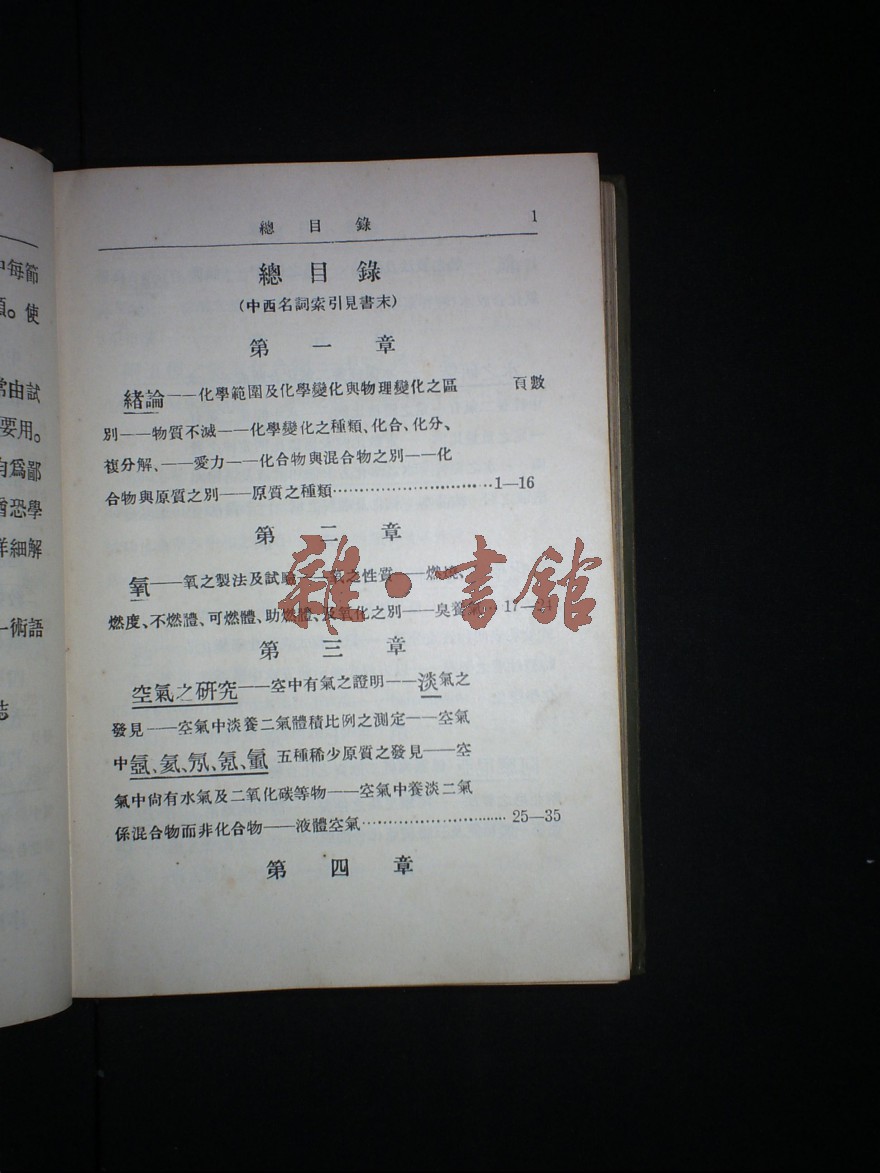 中每節
。使
常由試
要用。
均爲鄙
恐學
詳細解
一術語
誌
總目錄 1
總目錄
(中西名詞索引見書末)
第一章
緒論——化學範圍及化學變化與物理變化之區 頁數
別——物質不滅——化學變化之種類、化合、化分、
複分解、——愛力——化合物與混合物之別——化
合物與原質之別——原質之種類……………………1—16
第二章
氧——氧之製法及試驗——氧之性質——燃燒、
燃度、不燃體、可燃體、助燃體、及氧化之別——臭養氣…17—24
第三章
空氣之研究——空中有氣之證明——淡氣之
發見——空氣中淡養二氣體積比例之測定——空氣
中氬、氦、氖、氪、氙五種稀少原質之發見——空
氣中尙有水氣及二氧化碳等物——空氣中養淡二氣
係混合物而非化合物——液體空氣……………………25—35
第四章
雜·書館